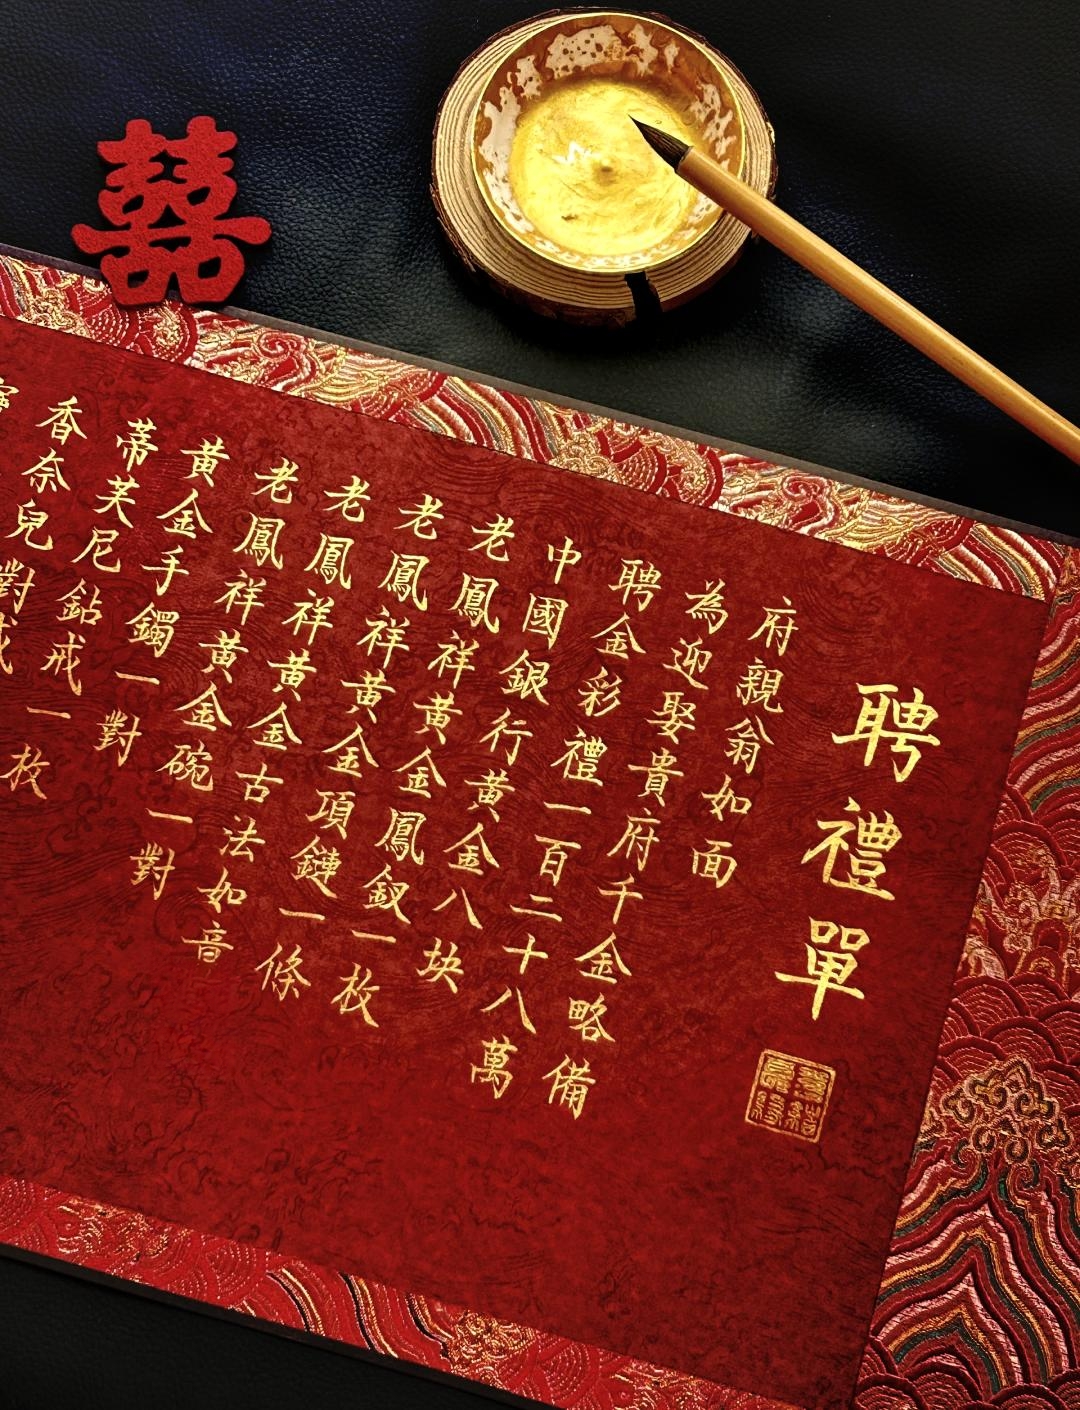 聘禮單
府親翁如面
為迎娶貴府千金略備
聘金彩禮一百二十八萬
中國銀行黃金八块
老鳳祥黃金鳳釵一枚
老鳳祥黃金項鏈一條
老鳳祥黃金古法如音
老鳳祥黃金碗一對
黃金手鐲一對
蒂芙尼鉆戒一枚
香奈兒對戒
囍